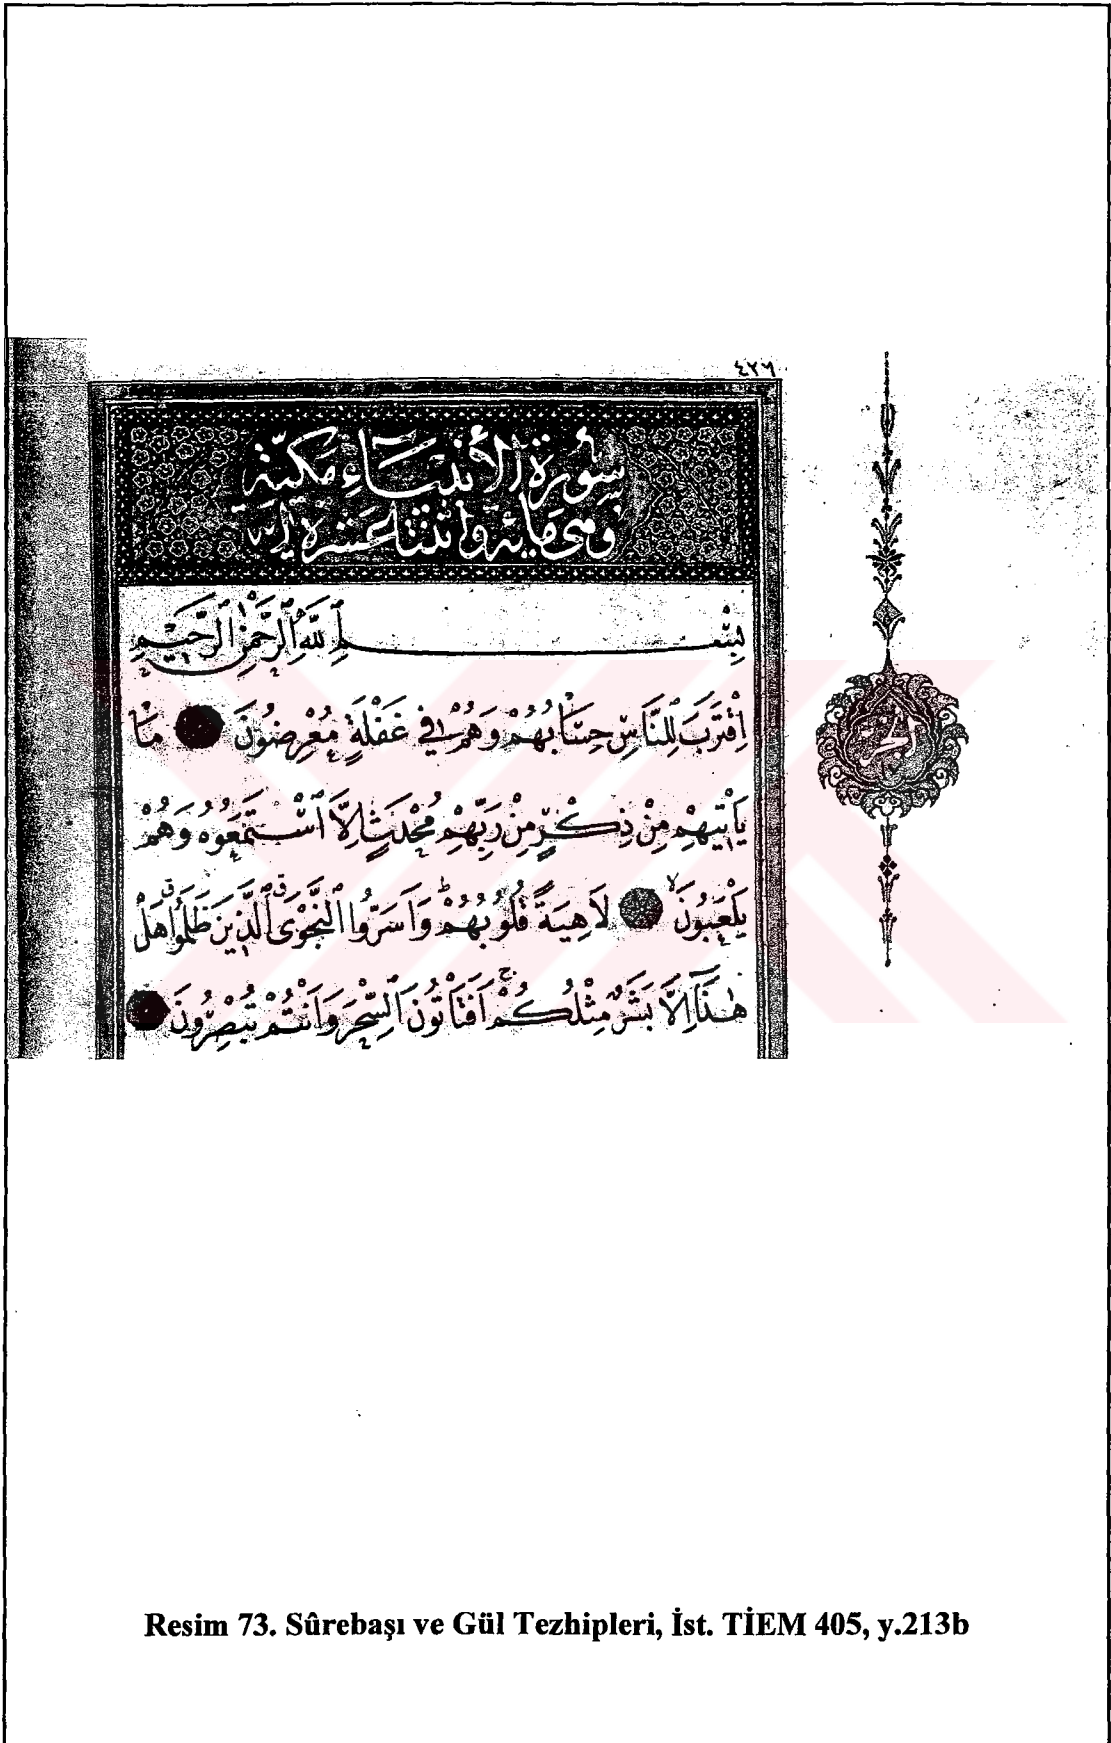 ٤٢٦
سُورَةُ الْأَنْبِيَاءِ مَكِّيَّةٌ
وَهِيَ مِائَة وَاثْنَتَا عَشَرَة آيَة
بِسْمِ ٱللّٰهِ ٱلرَّحْمٰنِ ٱلرَّحِيمِ
اِقْتَرَبَ لِلنَّاسِ حِسَابُهُمْ وَهُمْ فِي غَفْلَةٍ مُعْرِضُونَ مَا
يَأْتِيهِمْ مِنْ ذِكْرٍ مِنْ رَبِّهِمْ مُحْدَثٍ اِلَّا ٱسْتَمَعُوهُ وَهُمْ
يَلْعَبُونَ لَاهِيَةً قُلُوبُهُمْ وَاَسَرُّوا ٱلنَّجْوَى ٱلَّذِينَ ظَلَمُوا هَلْ
هٰذَٓا اِلَّا بَشَرٌ مِثْلُكُمْ اَفَتَأْتُونَ ٱلسِّحْرَ وَاَنْتُمْ تُبْصِرُونَ
الجزء
Resim 73. Sûrebaşı ve Gül Tezhipleri, İst. TİEM 405, y.213b